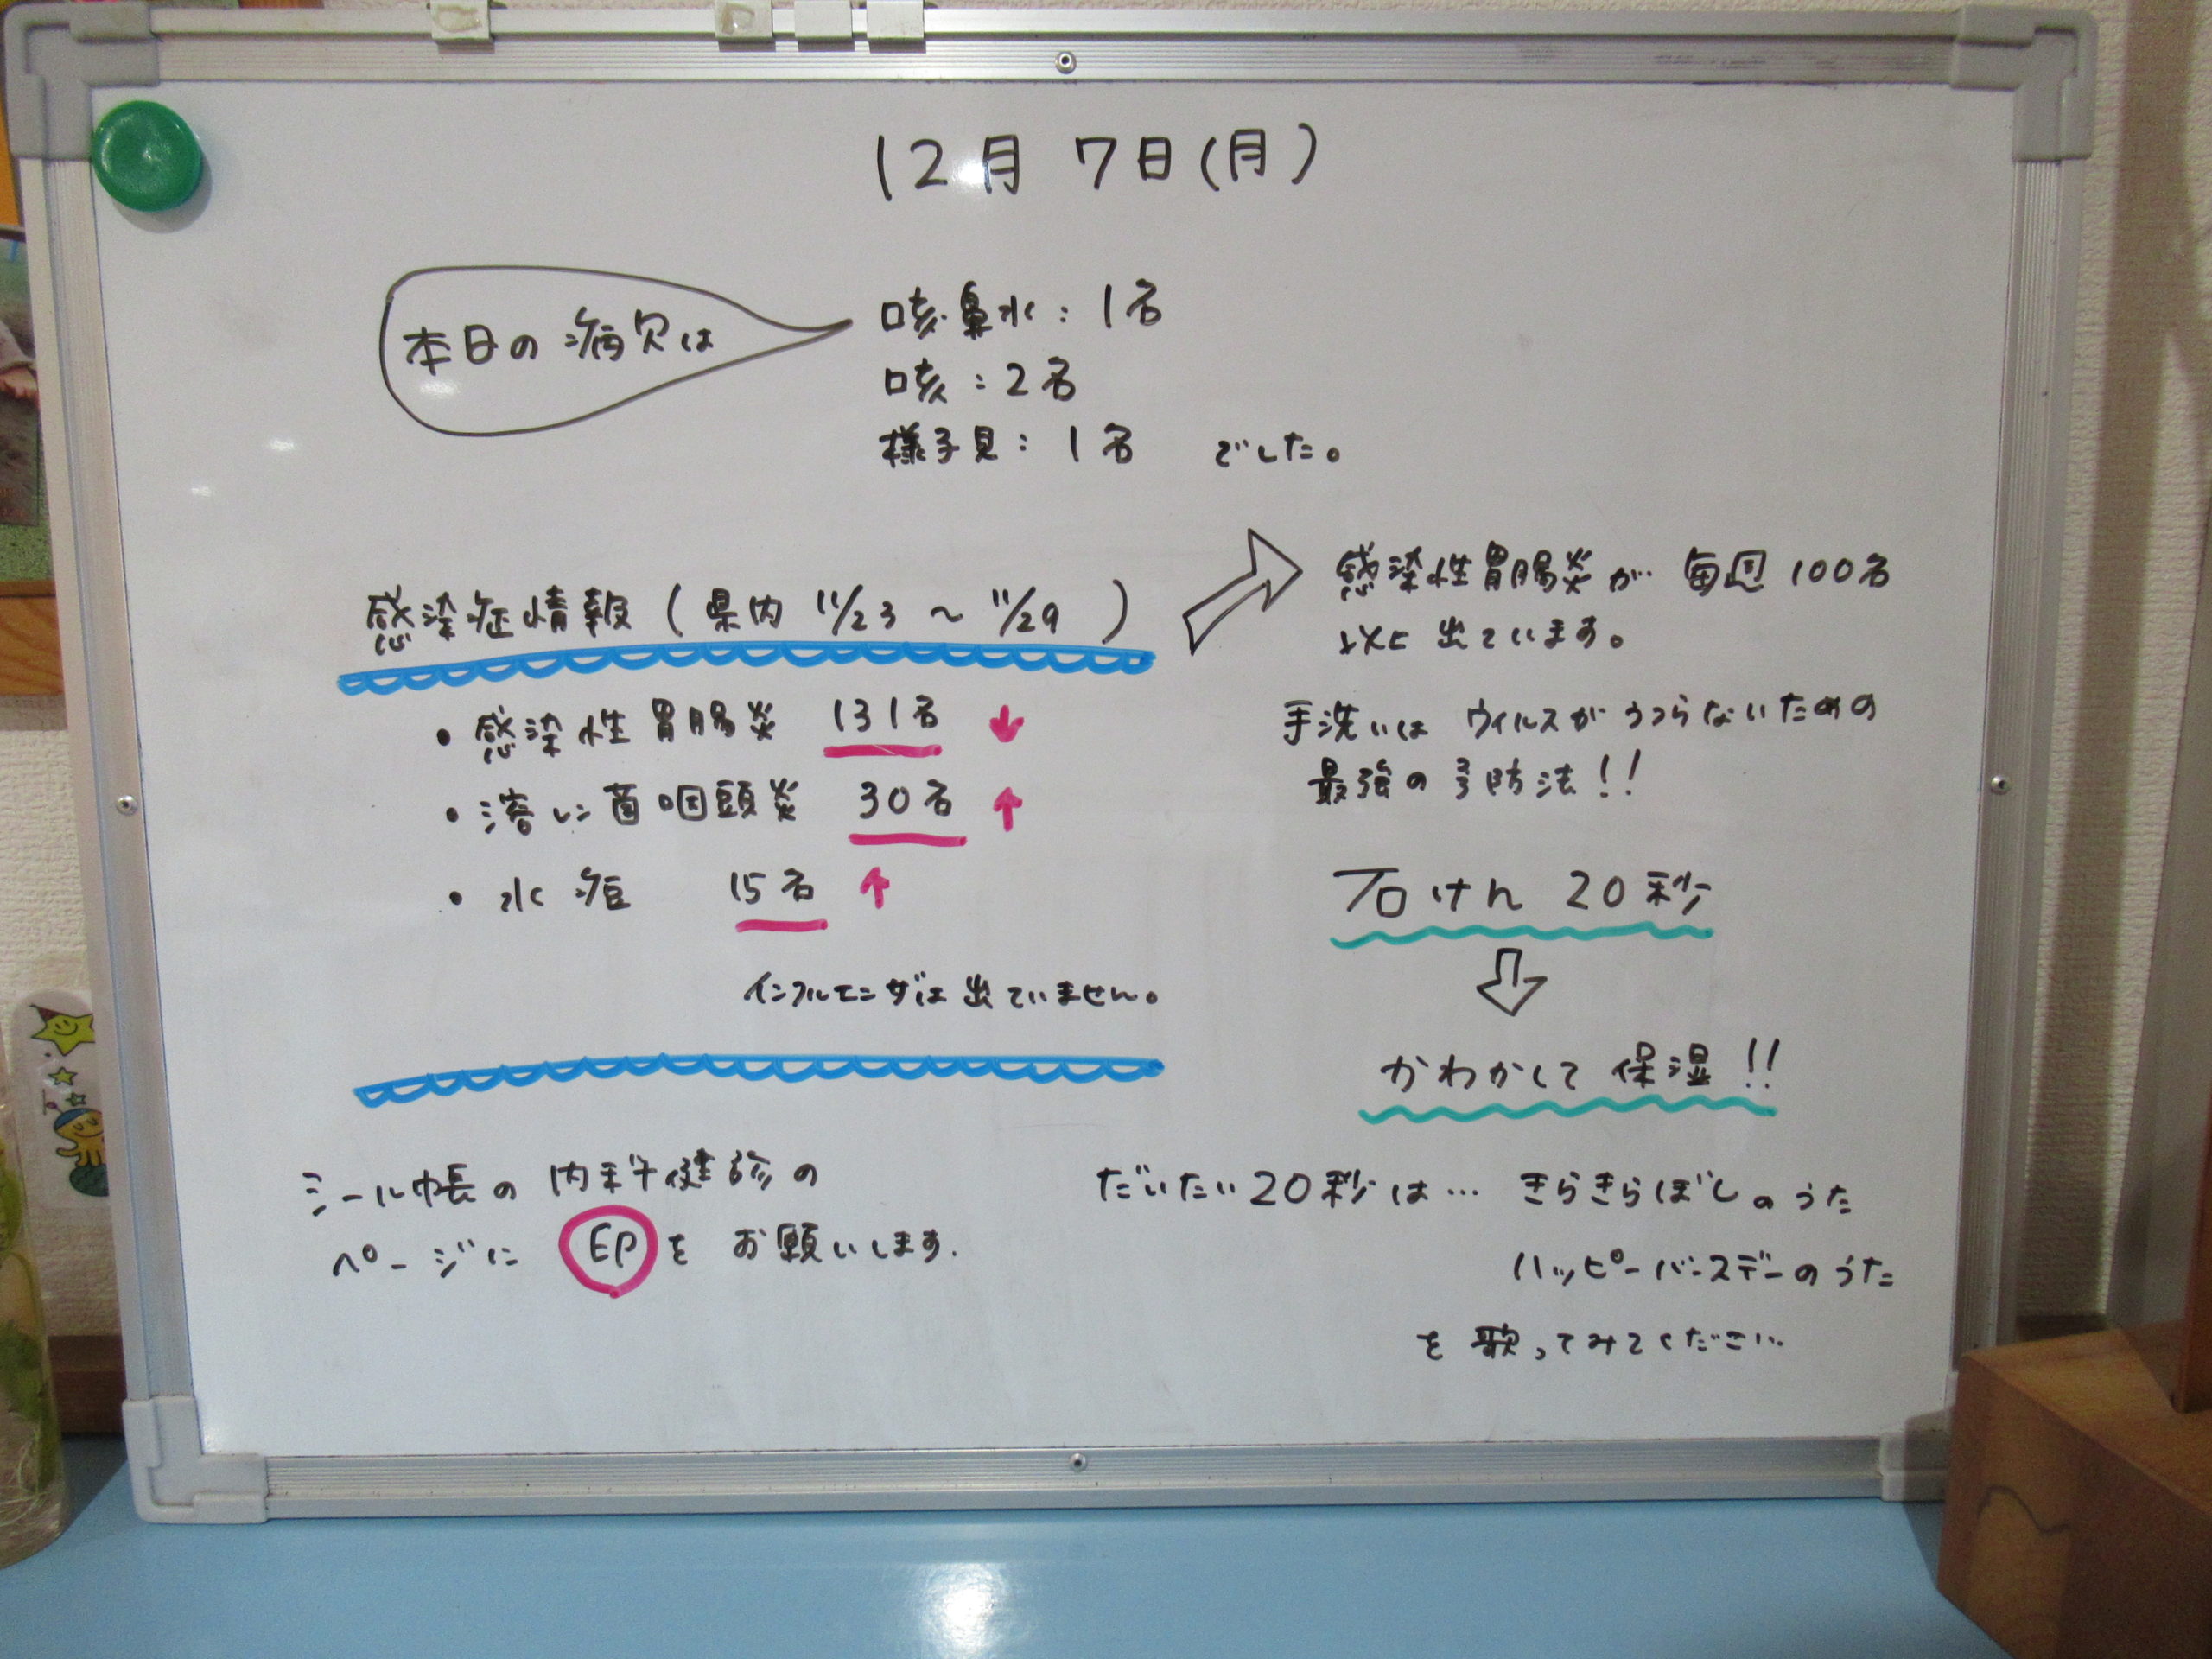 12月 7日(月)
本日の病欠は
咳・鼻水：1名
咳：2名
様子見：1名 でした。
感染症情報(県内 11/23 ～ 11/29 )
・感染性胃腸炎 131名 ↓
・溶レン菌咽頭炎 30名 ↑
・水痘 15名 ↑
インフルエンザは出ていません。
シール帳の内科健診の
ページに 印を お願いします.
感染性胃腸炎が 毎週100名
以上出ています。
手洗いは ウィルスがうつらないための
最強の予防法!!
石けん 20秒
かわかして 保湿!!
だいたい20秒は… きらきらぼしのうた
ハッピーバースデーのうた
を 歌ってみてください.